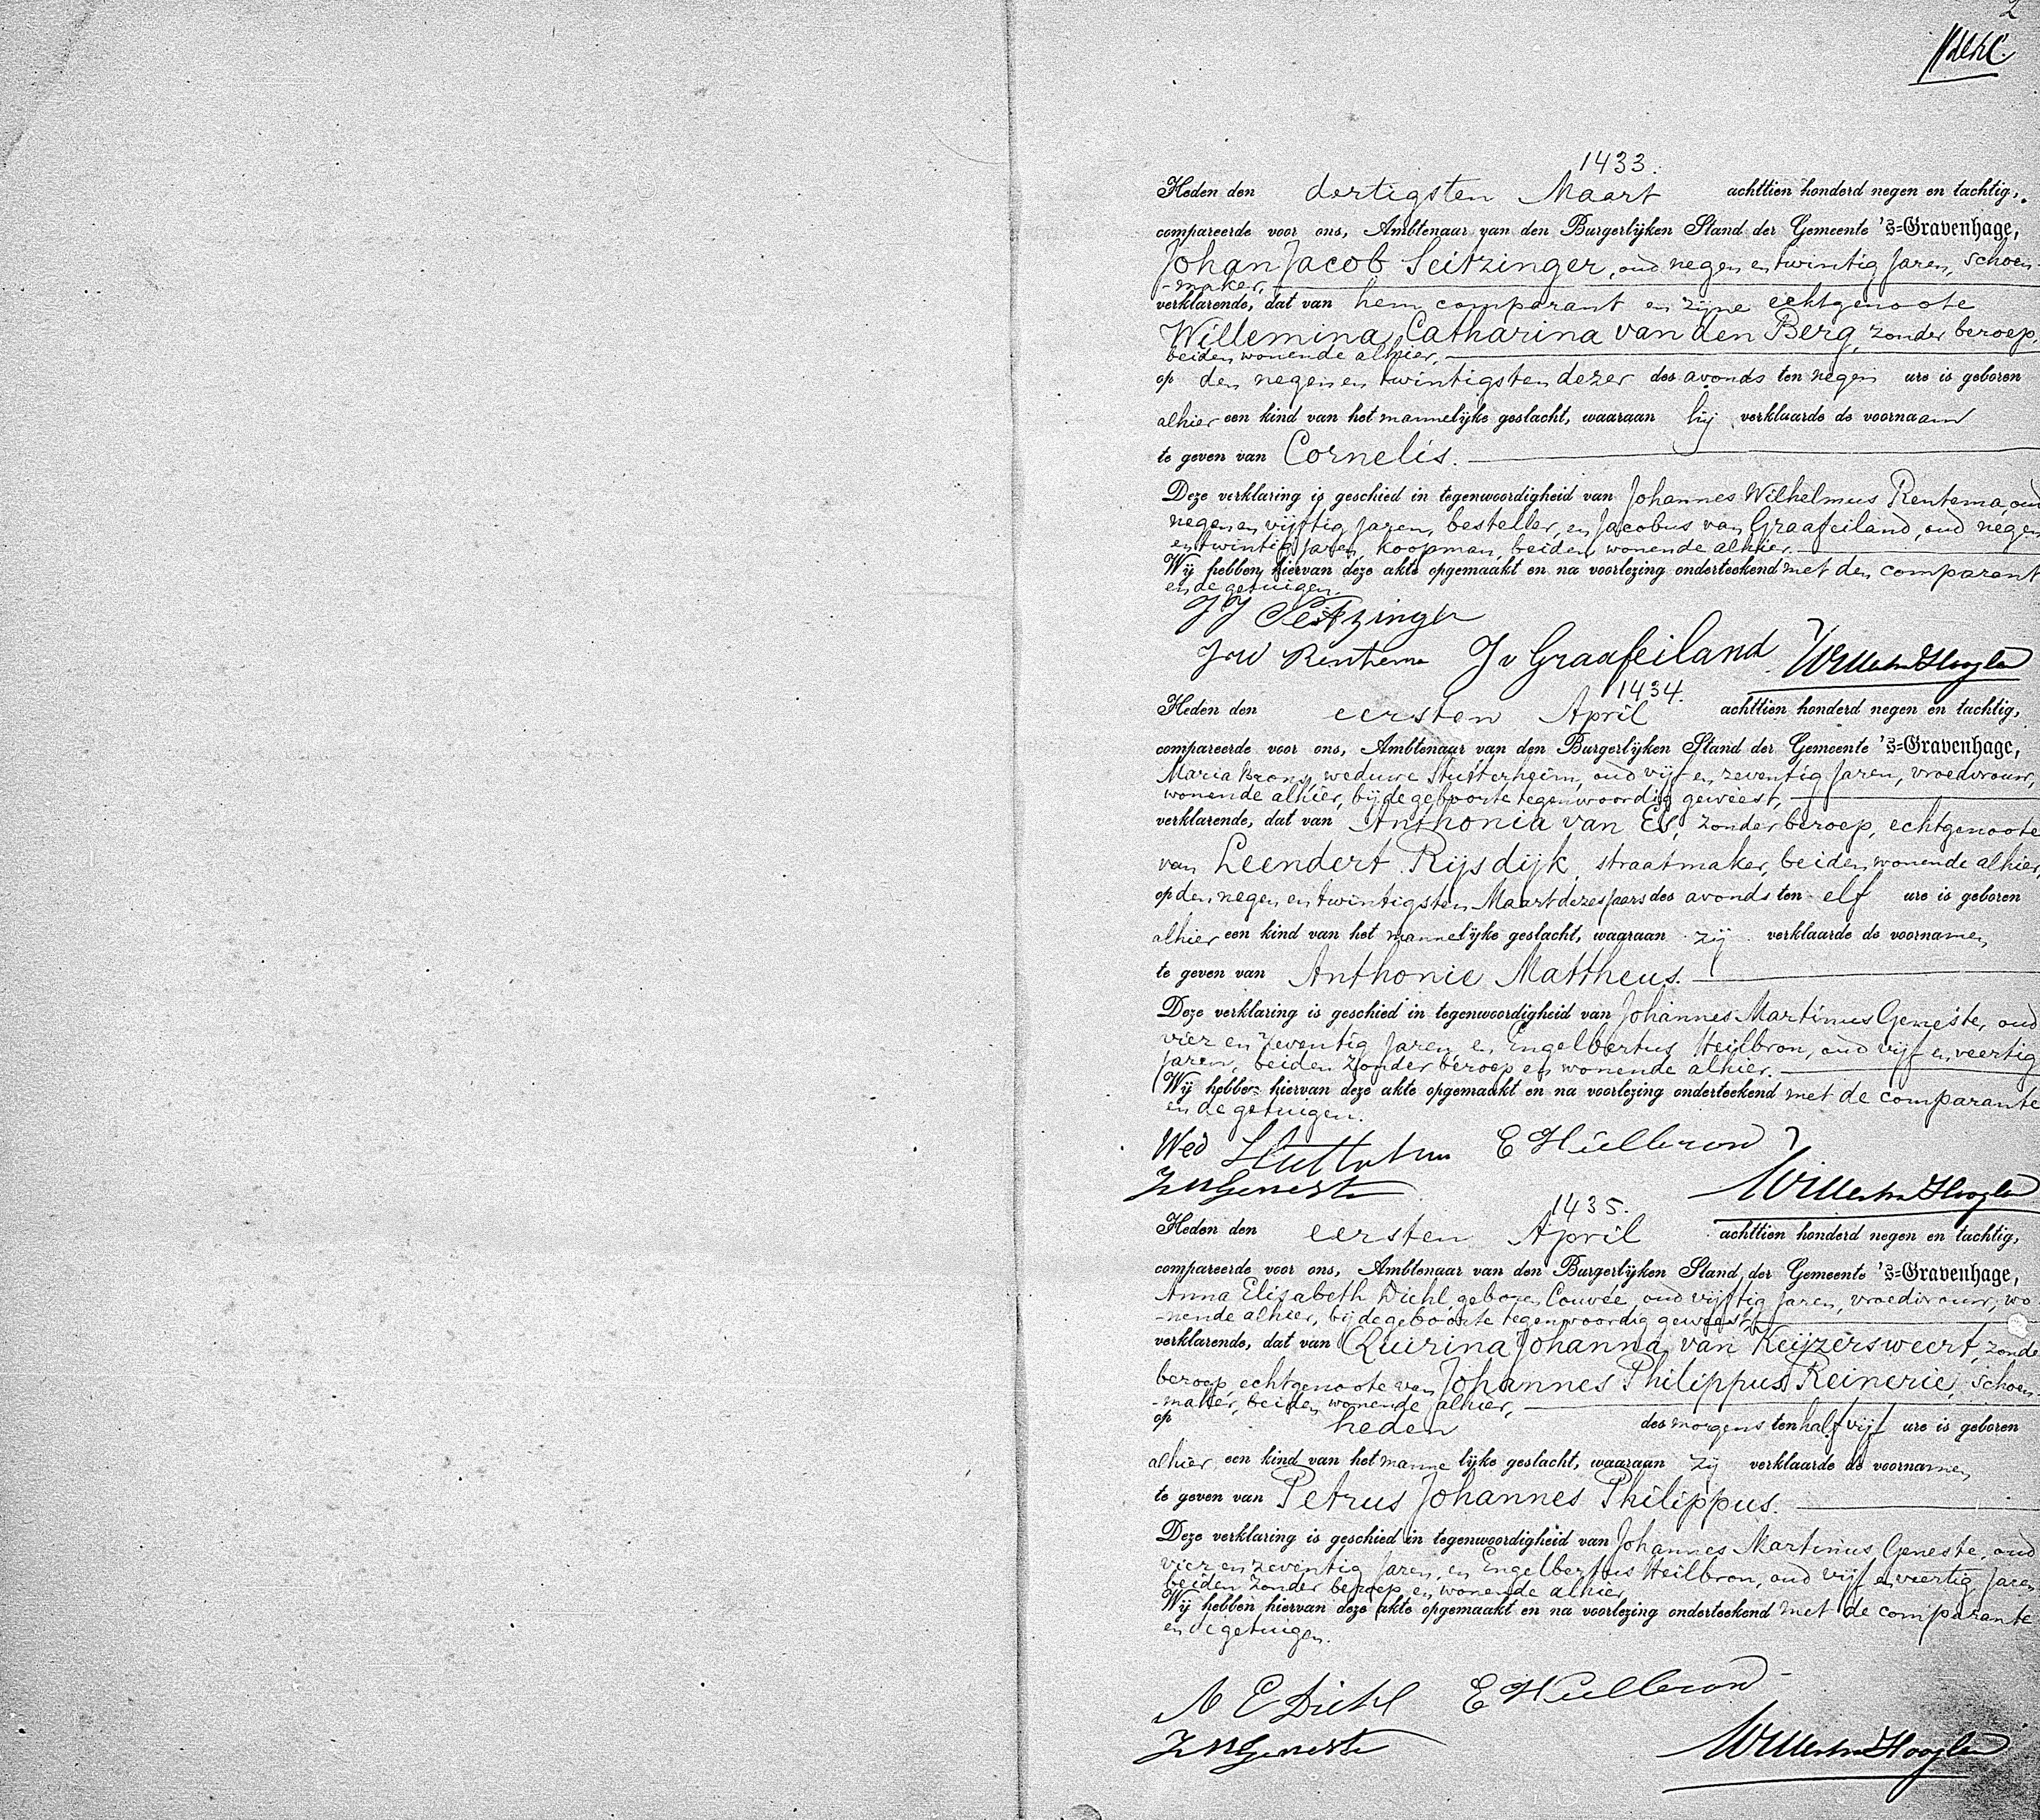 2
1433.
Heden den dertigsten Maart achttien honderd negen en tachtig,
compareerde voor ons, Ambtenaar van den Burgerlijken Stand der Gemeente 's=Gravenhage,
Johan Jacob Seitzinger, oud negen en twintig jaren, schoen-
-maker,
verklarende, dat van hem comparant en zijne echtgenoote
Willemina Catharina van den Berg, zonder beroep,
beiden wonende alhier,
op den negen en twintigsten dezer des avonds ten negen ure is geboren
alhier een kind van het mannelijke geslacht, waaraan hij verklaarde de voornaam
te geven van Cornelis.
Deze verklaring is geschied in tegenwoordigheid van Johannes Wilhelmus Rentema, oud
negen en vijftig jaren, besteller, en Jacobus van Graafeiland, oud negen
en twintig jaren, koopman, beiden wonende alhier.
Wij hebben hiervan deze akte opgemaakt en na voorlezing onderteekend met den comparant
en de getuigen.
JJ Seitzinger
JW Rentema J v Graafeiland
1434.
Heden den eersten April achttien honderd negen en tachtig,
compareerde voor ons, Ambtenaar van den Burgerlijken Stand der Gemeente 's=Gravenhage,
Maria Brons, weduwe Stutterheim, oud vijf en zeventig jaren, vroedvrouw,
wonende alhier, bij de geboorte tegenwoordig geweest,
verklarende, dat van Anthonia van Es, zonder beroep, echtgenoote
van Leendert Rijsdijk, straatmaker, beiden wonende alhier,
op den negen en twintigsten Maart dezes jaars des avonds ten elf ure is geboren
alhier een kind van het mannelijke geslacht, waaraan zij verklaarde de voornamen
te geven van Anthonie Mattheus.
Deze verklaring is geschied in tegenwoordigheid van Johannes Martinus Geneste, oud
vier en zeventig jaren, en Engelbertus Heilbron, oud vijf en veertig
jaren, beiden zonder beroep en wonende alhier.
Wij hebben hiervan deze akte opgemaakt en na voorlezing onderteekend met de comparante
en de getuigen.
Wed Stutterheim E Heilbron
JMGeneste
1435.
Heden den eersten April achttien honderd negen en tachtig,
compareerde voor ons, Ambtenaar van den Burgerlijken Stand der Gemeente 's=Gravenhage,
Anna Elisabeth Diehl, geboren Couvée, oud vijftig jaren, vroedvrouw, wo-
-nende alhier, bij de geboorte tegenwoordig geweest,
verklarende, dat van Quirina Johanna van Keijzersweert, zonder
beroep, echtgenoote van Johannes Philippus Reinerie, schoen-
-maker, beiden wonende alhier,
op heden des morgens ten half vijf ure is geboren
alhier een kind van het mannelijke geslacht, waaraan zij verklaarde de voornamen
te geven van Petrus Johannes Philippus.
Deze verklaring is geschied in tegenwoordigheid van Johannes Martinus Geneste, oud
vier en zeventig jaren, en Engelbertus Heilbron, oud vijf en veertig jaren
beiden zonder beroep en wonende alhier
Wij hebben hiervan deze akte opgemaakt en na voorlezing onderteekend met de comparante
en de getuigen.
A E Diehl E Heilbron
JMGeneste